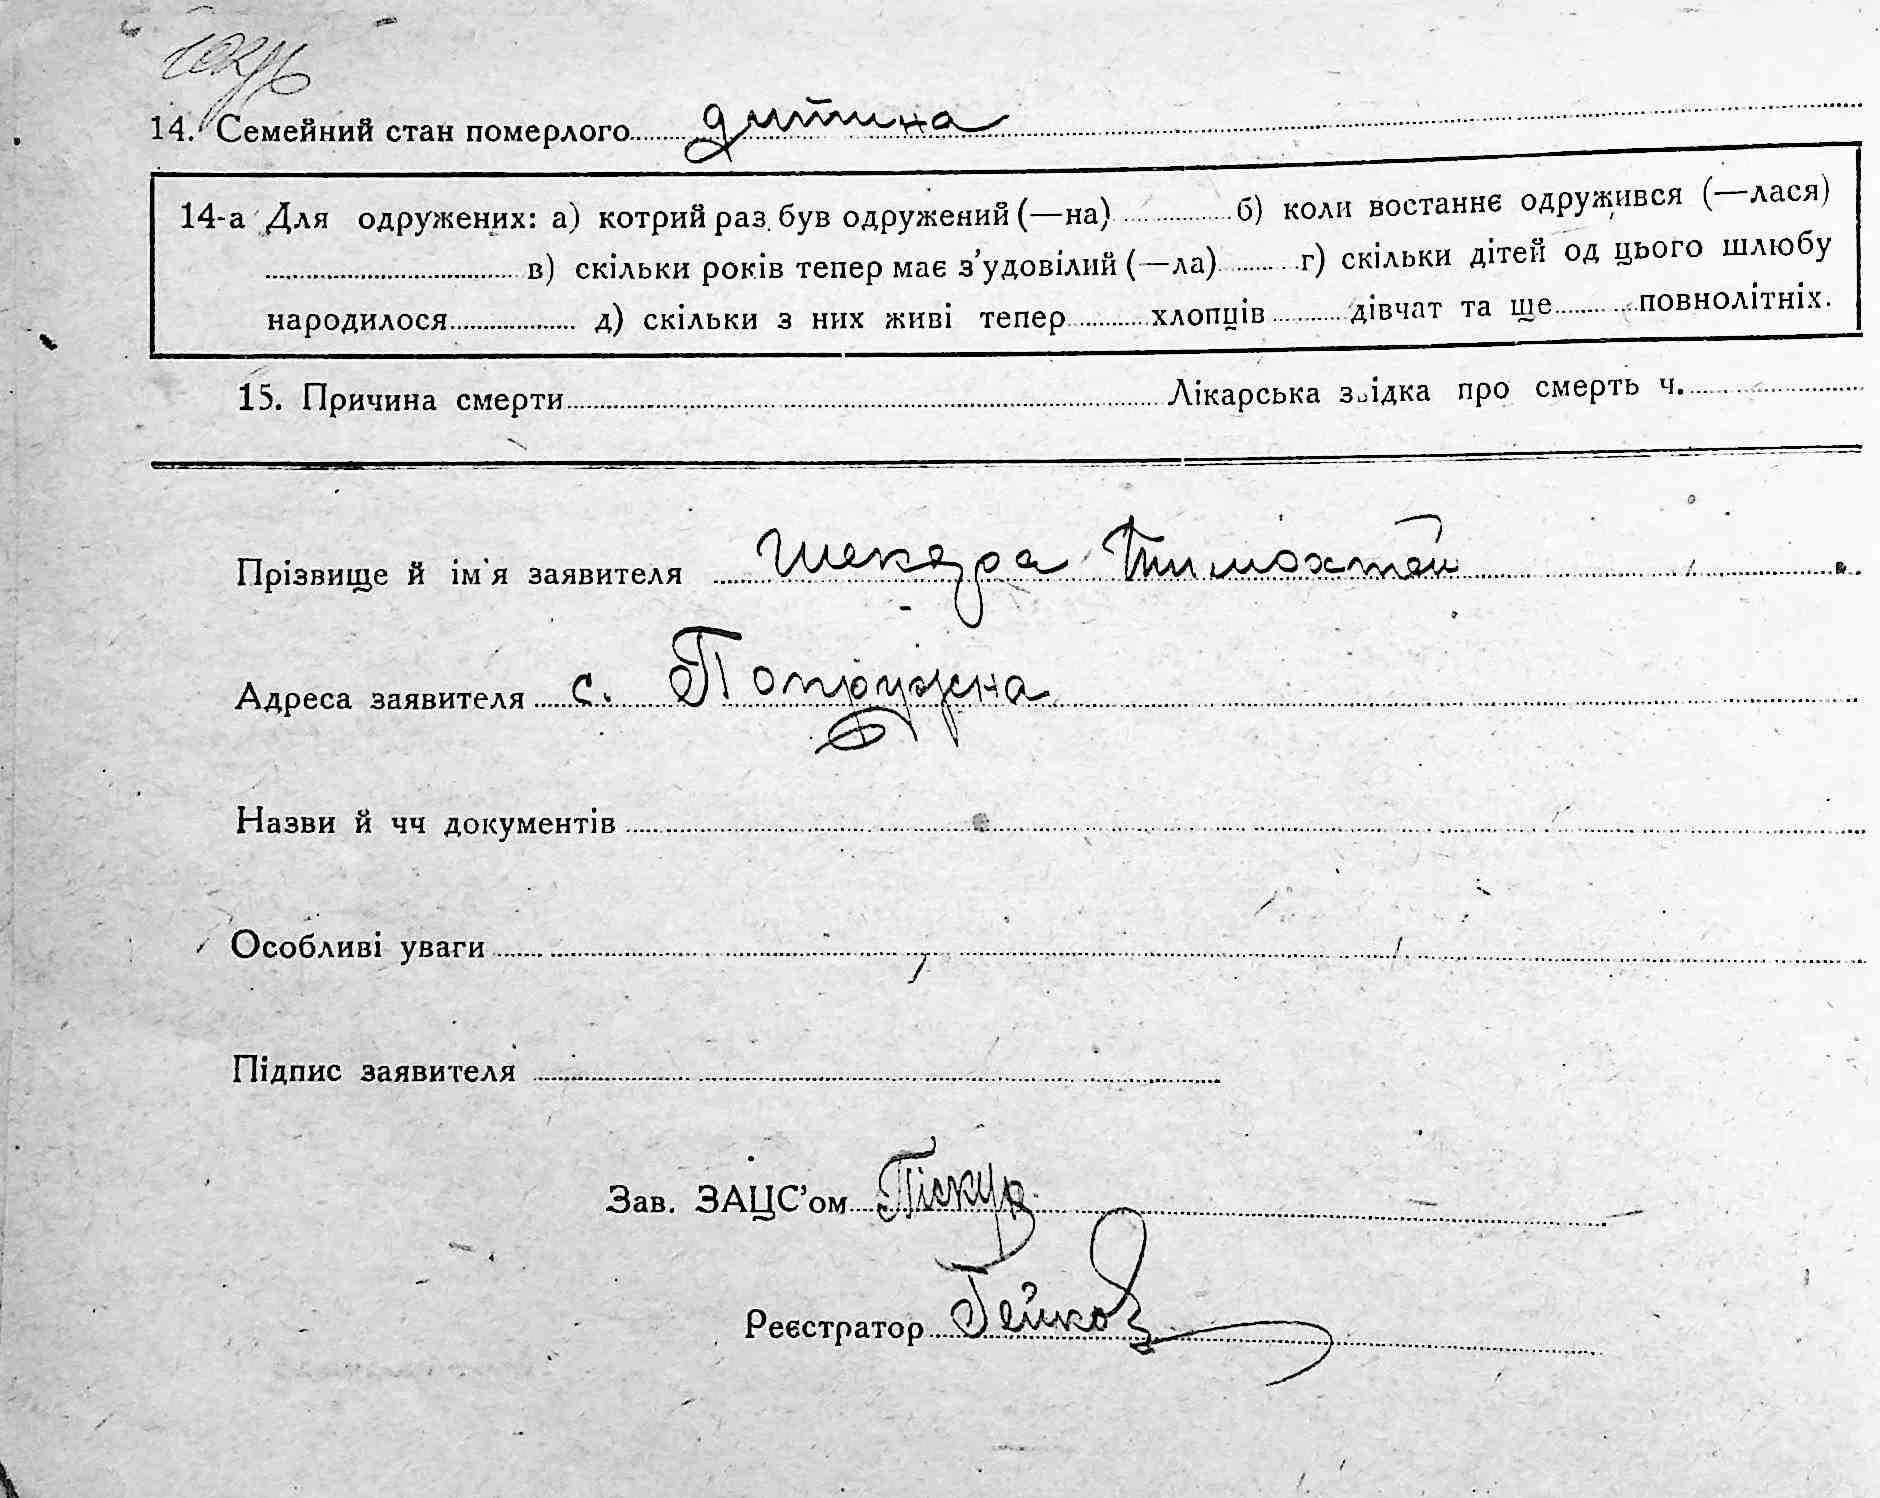 14. Семейний стан померлого дитина
14-а Для одружених: а) котрий раз був одружений (—на) б) коли востаннє одружився (—лася)
в) скільки років тепер має з'удовілий (—ла) г) скільки дітей од цього шлюбу
народилося д) скільки з них живі тепер хлопців дівчат та ще повнолітніх.
15. Причина смерти Лікарська звідка про смерть ч.
Прізвище й ім'я заявителя Шекера
Адреса заявителя с. Попружна
Назви й чч документів
Особливі уваги
Підпис заявителя
Зав. ЗАЦС'ом Піскур
Реєстратор